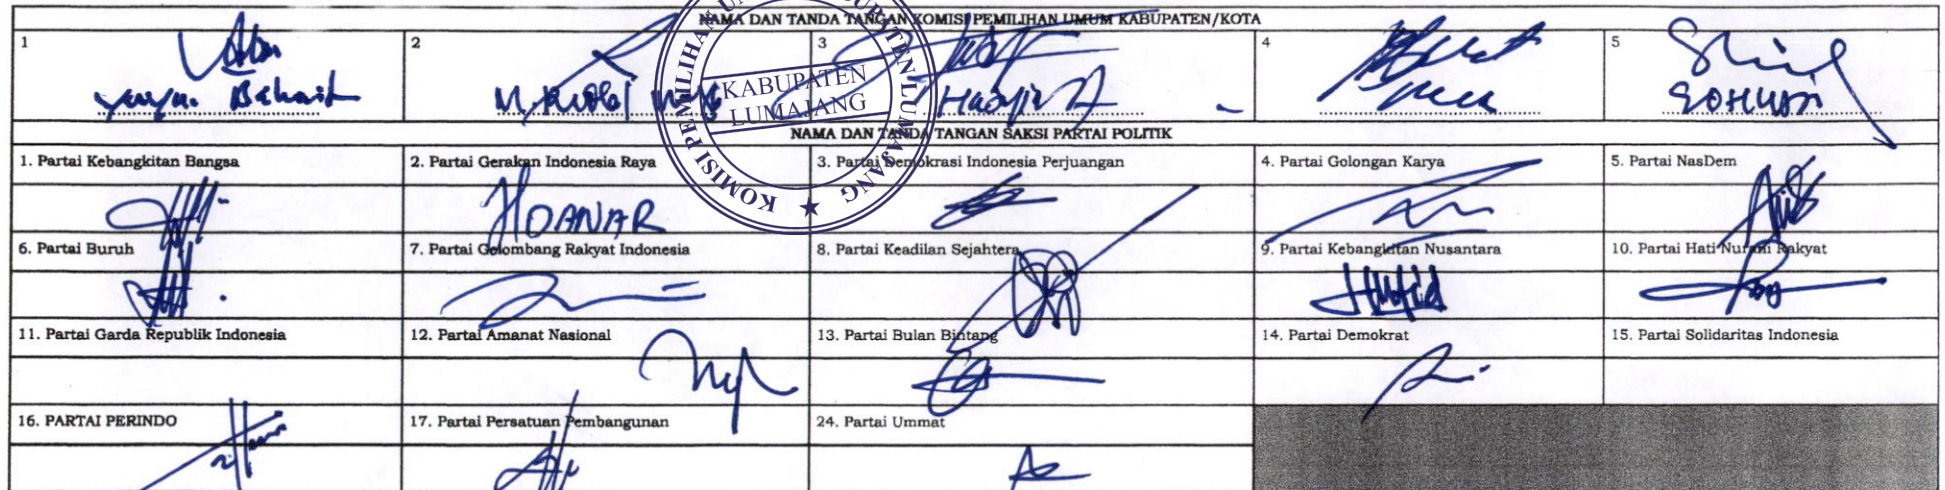 NAMA DAN TANDA TANGAN KOMISI PEMILIHAN UMUM KABUPATEN/KOTA
1 2 3 4 5
KOMISI PEMILIHAN UMUM KABUPATEN LUMAJANG
KABUPATEN
LUMAJANG
NAMA DAN TANDA TANGAN SAKSI PARTAI POLITIK
1. Partai Kebangkitan Bangsa 2. Partai Gerakan Indonesia Raya 3. Partai Demokrasi Indonesia Perjuangan 4. Partai Golongan Karya 5. Partai NasDem
6. Partai Buruh 7. Partai Gelombang Rakyat Indonesia 8. Partai Keadilan Sejahtera 9. Partai Kebangkitan Nusantara 10. Partai Hati Nurani Rakyat
11. Partai Garda Republik Indonesia 12. Partai Amanat Nasional 13. Partai Bulan Bintang 14. Partai Demokrat 15. Partai Solidaritas Indonesia
16. PARTAI PERINDO 17. Partai Persatuan Pembangunan 24. Partai Ummat